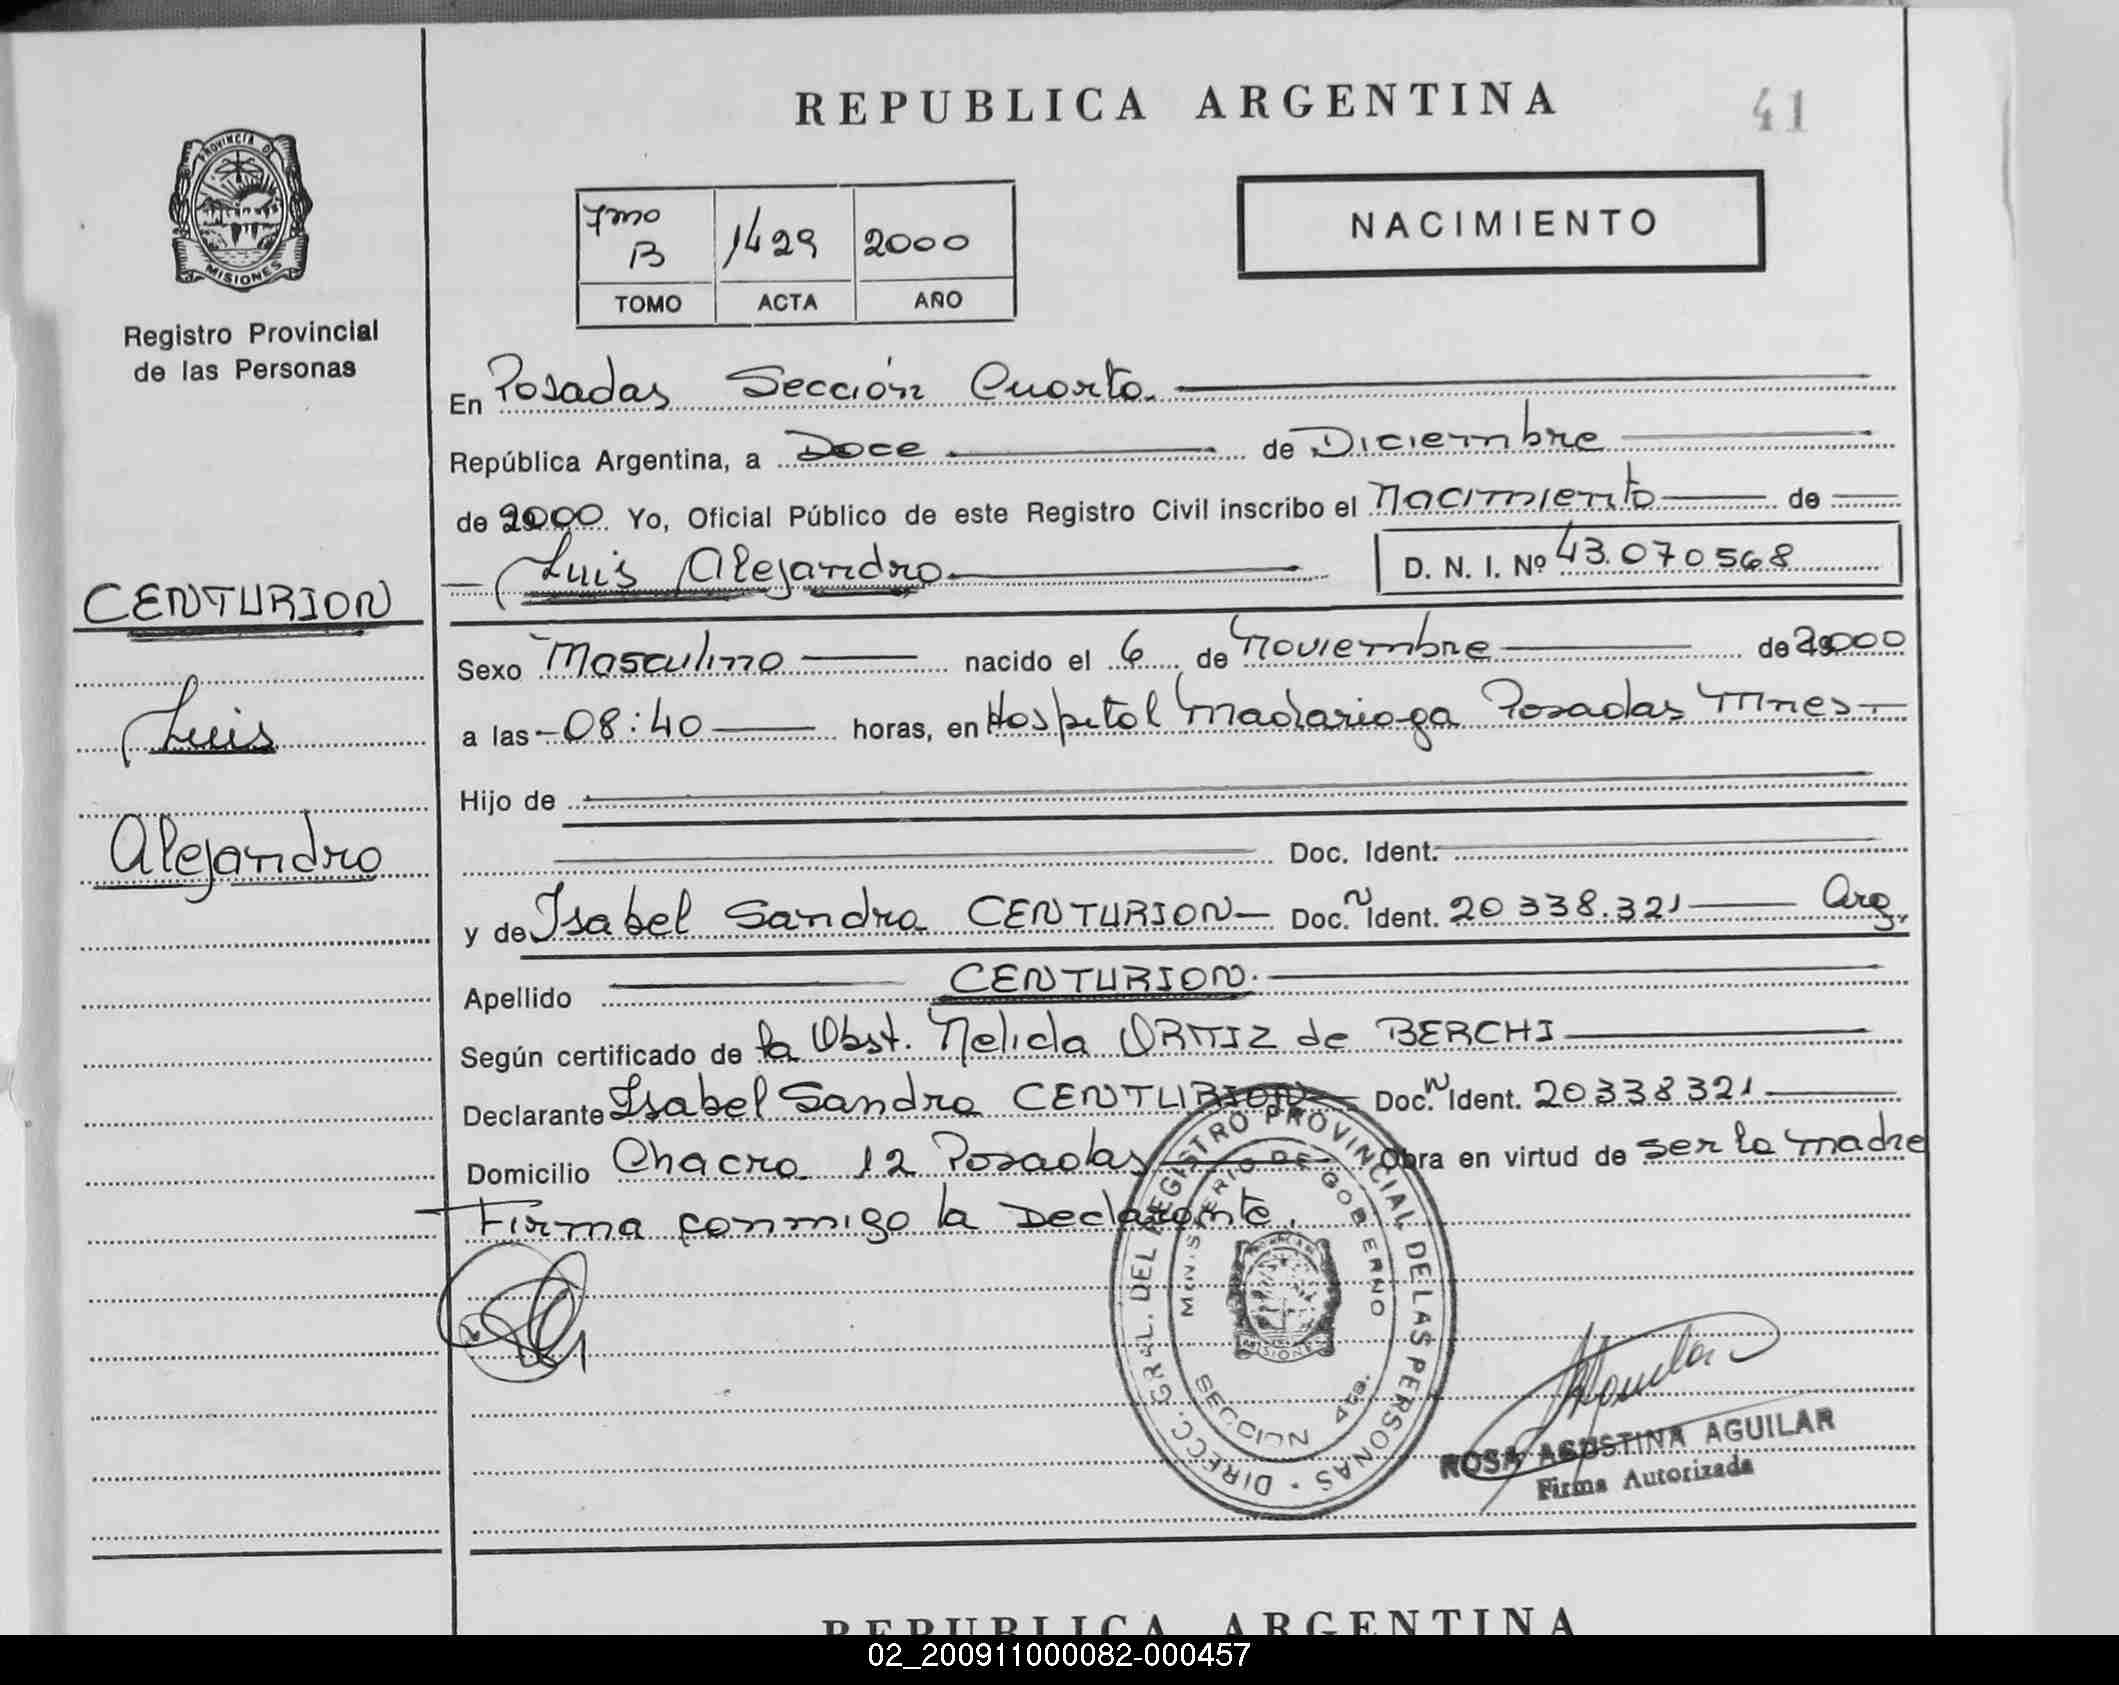 REPUBLICA ARGENTINA
41
PROVINCIA DE
MISIONES
Registro Provincial
de las Personas
7mo
B
1429
2000
TOMO
ACTA
AÑO
NACIMIENTO
En Posadas Sección Cuarta.
República Argentina, a Doce de Diciembre
de 2000 Yo, Oficial Público de este Registro Civil inscribo el Nacimiento de
Luis Alejandro
D. N. I. Nº 43.070568
CENTURION
Luis
Alejandro
Sexo Masculino nacido el 6 de Noviembre de 2000
a las 08:40 horas, en Hospital Madariaga Posadas Mnes
Hijo de
Doc. Ident.
y de Isabel Sandra CENTURION Doc. N Ident. 20 338.321 Arg.
Apellido CENTURION.
Según certificado de la Obst. Nelida ORTIZ de BERCHI
Declarante Isabel Sandra CENTURION Doc. N Ident. 20338321
Domicilio Chacra 12 Posadas Obra en virtud de ser la madre
Firma conmigo la Declarante.
DIRECC. GRAL. DEL REGISTRO PROVINCIAL DE LAS PERSONAS
MINISTERIO DE GOBIERNO
MISIONES
SECCION 4ta.
ROSA AGUSTINA AGUILAR
Firma Autorizada
REPUBLICA ARGENTINA
02_200911000082-000457